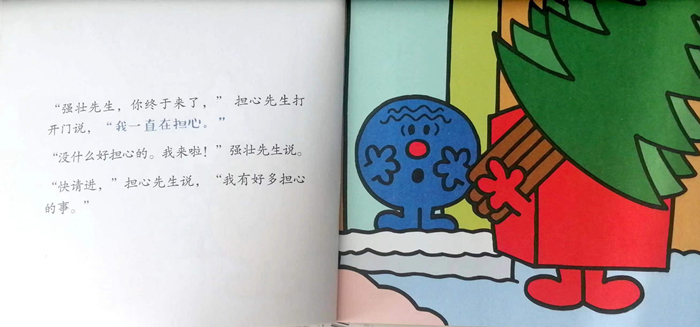 “强壮先生，你终于来了，”担心先生打
开门说，“我一直在担心。”
“没什么好担心的。我来啦！”强壮先生说。
“快请进，”担心先生说，“我有好多担心
的事。”